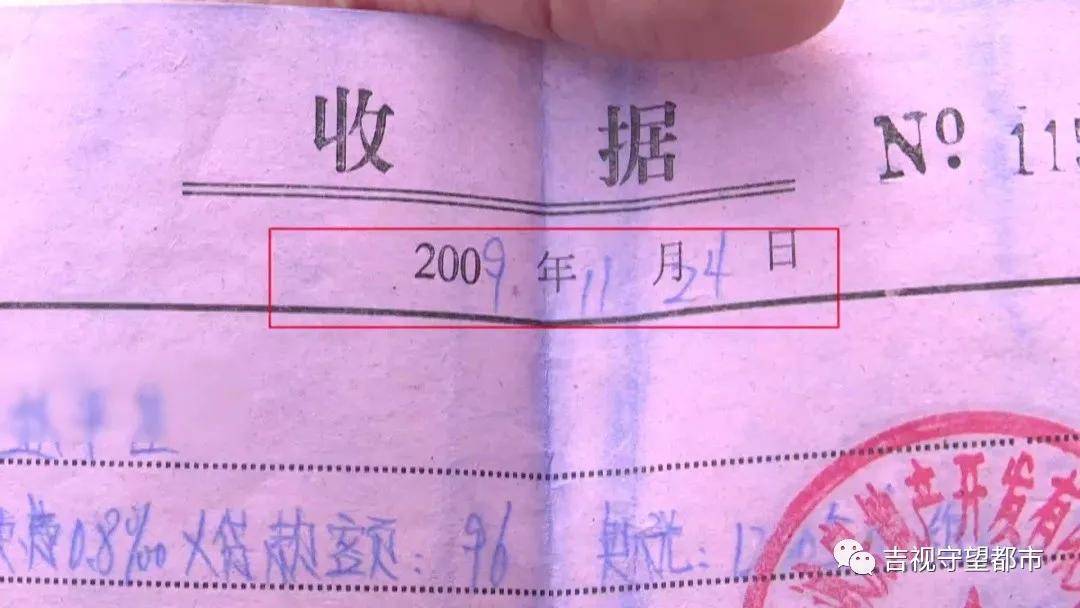 收 据 Nº 115
2009 年 11 月 24 日
费0.8‰ 贷款金额: 96 契税:
产开发有
吉视守望都市